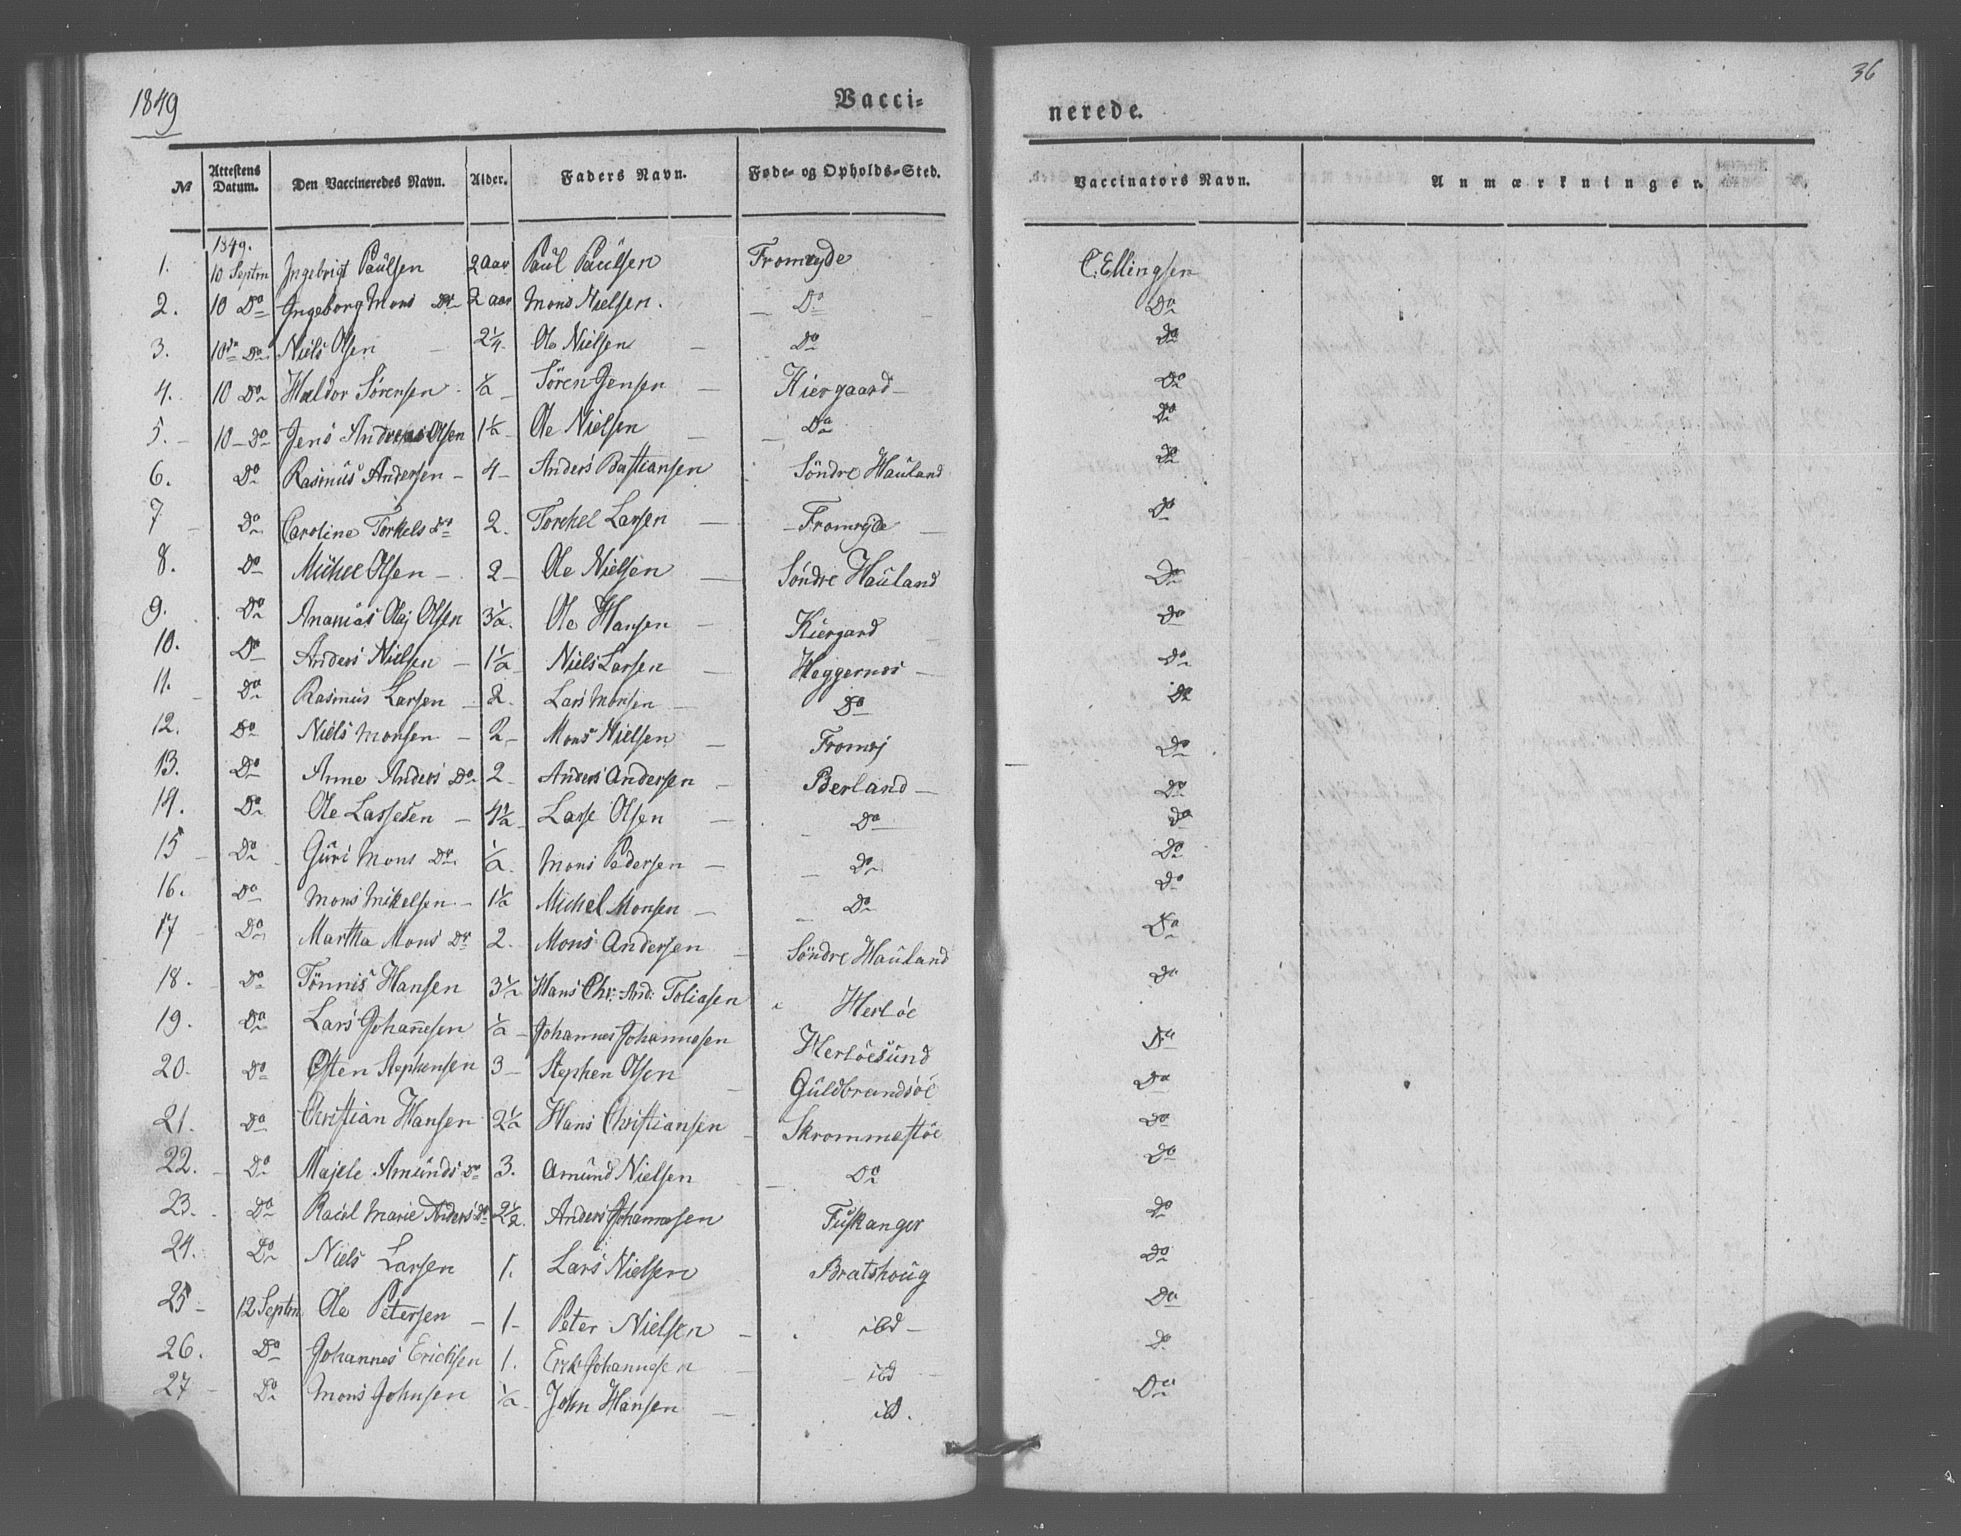 1849
Vacci-
nerede.
36
No Attestens Datum. Den Vaccineredes Navn. Alder. Faders Navn. Føde- og Opholds-Sted. Vaccinators Navn. Anmærkninger.
1849.
1. 10 Septm Ingebrigt Paulsen 2 aar Paul Paulsen Fromrejde C. Ellingsen
2. 10 Do Ingeborg Mons Dr 2 aar Mons Nielsen. Do Do
3. 10de Do Niels Olsen 2 1/4 Ole Nielsen Do Do
4. 10 Do Haldor Sörensen 1/2 Sören Jensen Kiergaard Do
5. 10 Do Jens Andreas Olsen 1 1/2 Ole Nielsen Do Do
6. Do Rasmus Andersen 4 Anders Bastiansen Söndre Hauland Do
7 Do Caroline Torkels Dr 2. Torchel Larsen Fromrejde Do
8. Do Michel Olsen 2 Ole Nielsen Söndre Hauland Do
9. Do Ananias Olaj Olsen 3 1/2. Ole Hansen Kiergard Do
10. Do Anders Nielsen 1 1/2 Niels Larsen Heggernes Do
11. Do Rasmus Larsen 2. Lars Monsen Do Do
12. Do Niels Monsen 2 Mons Nielsen Fromrj Do
13. Do Anne Anders Dr 2 Anders Andersen Berland Do
14. Do Ole Lassesen 4 1/2 Lasse Olsen Do Do
15 Do Guri Mons Dr. 1/2. Mons Pedersen Do Do
16. Do Mons Mikelsen 1 1/2 Michel Monsen Do Do
17 Do Martha Mons Dr 2. Mons Andersen Söndre Hauland Do
18. Do Tönnis Hansen 3 1/2 Hans Chr. And: Toliasen Herlöe Do
19. Do Lars Johannesen 1/2 Johannes Johannesen Herlöesund Do
20. Do Osten Stephensen 3 Stephen Olsen Guldbrandsöe Do
21. Do Christian Hansen 2 1/2 Hans Christiansen Skrommestöe Do
22. Do Majele Amunds Dr 3. Amund Nielsen Do Do
23. Do Rachel Marie Anders Dr 2 1/2. Anders Johannesen Tuskanger Do
24. Do Niels Larsen 1. Lars Nielsen Bratshoug Do
25 12 Septm Ole Petersen 1 Peter Nielsen ibd Do
26. Do Johannes Erichsen 1. Erik Johannesen ibd Do
27 Do Mons Johnsen 1/2 John Hansen ibd. Do